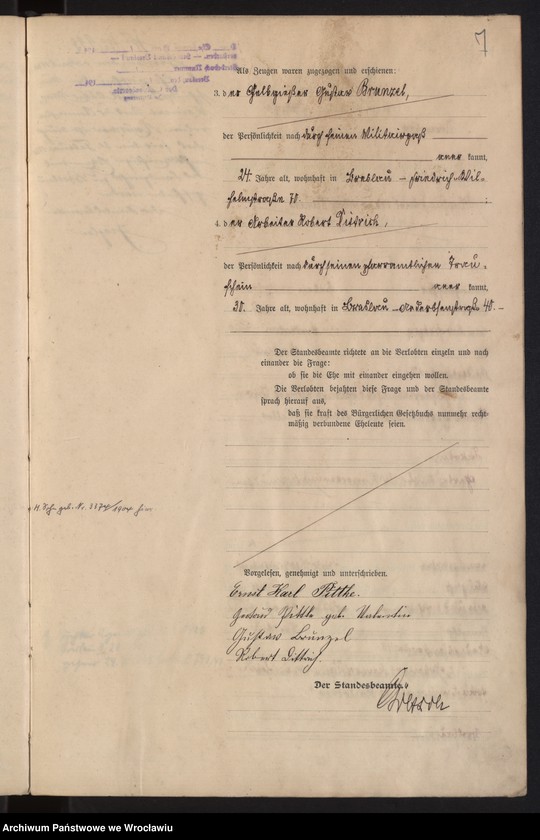 7
Als Zeugen waren zugezogen und erschienen:
3. der Gelbgießer Gustav Brunzel,
der Persönlichkeit nach durch seinen Militairpaß
aner kannt,
24 Jahre alt, wohnhaft in Breslau – Friedrich-Wil-
helmstraße 70.
4. der Arbeiter Robert Dittrich,
der Persönlichkeit nach durch seinen pfarramtlichen Trau-
schein aner kannt,
30. Jahre alt, wohnhaft in Breslau – Anderssenstraße 40. –
Der Standesbeamte richtete an die Verlobten einzeln und nach
einander die Frage:
ob sie die Ehe mit einander eingehen wollen.
Die Verlobten bejahten diese Frage und der Standesbeamte
sprach hierauf aus,
daß sie kraft des Bürgerlichen Gesetzbuchs nunmehr recht-
mäßig verbundene Eheleute seien.
geb. Nr. /1904 hier
Vorgelesen, genehmigt und unterschrieben.
Ernst Karl Pitthe.
Pitthe geb. Valentin
Gustav Brunzel
Robert Dittrich.
Der Standesbeamte.
Archiwum Państwowe we Wrocławiu